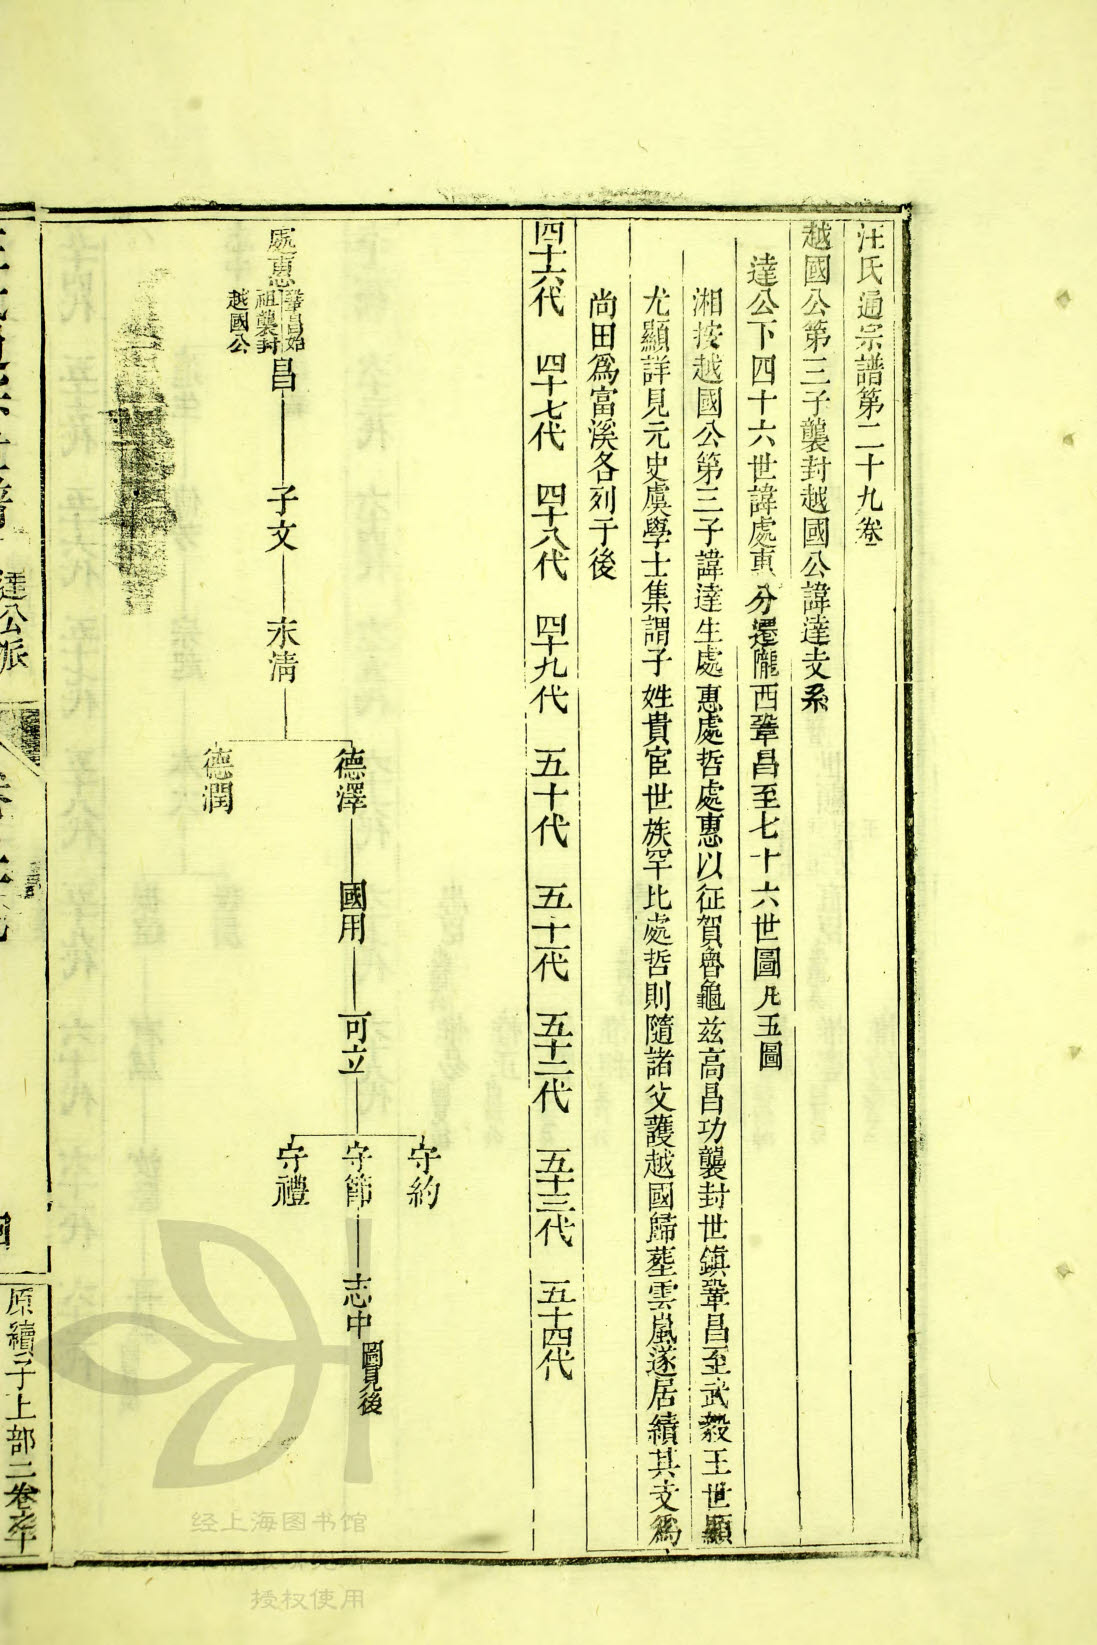 汪氏通宗譜第二十九卷
越國公第三子襲封越國公諱達支系
達公下四十六世諱處惠分遷隴西鞏昌至七十六世圖凡五圖
湘按越國公第三子諱達生處惠處哲處惠以征賀魯龜兹高昌功襲封世鎮鞏昌至武毅王世顯
尤顯詳見元史虞學士集謂子姓貴宦世族罕比處哲則隨諸父護越國歸塟雲嵐遂居績其支爲
尚田爲富溪各列于後
四十六代 四十七代 四十八代 四十九代 五十代 五十一代 五十二代 五十三代 五十四代
處惠 鞏昌始祖襲封越國公
昌
子文
永清
德澤
德潤
國用
可立
守約
守節
守禮
志中 圖見後
達公派
原續子上部二卷
经上海图书馆
授权使用